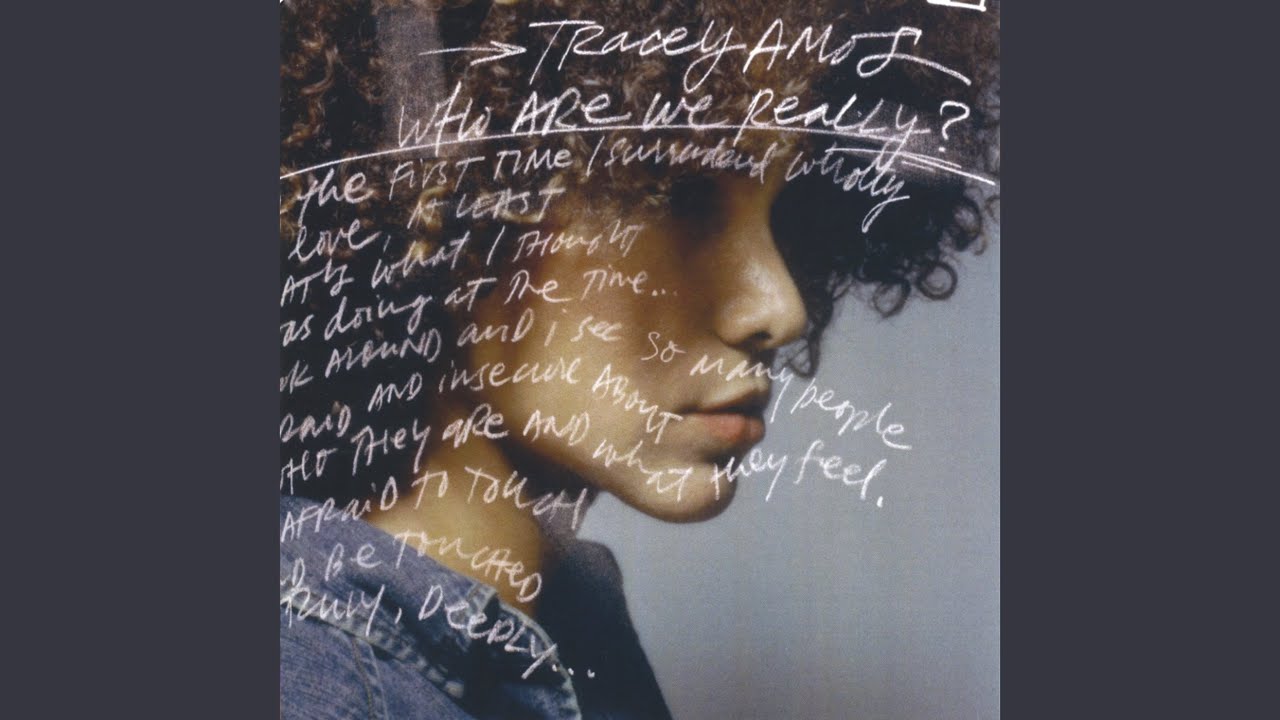 → TRACEY AMOS
WHO ARE WE REALLY?
THE FIRST TIME I surrendered wholly
love, AT LEAST
AT'S what I thought
as doing at the time...
OK AROUND and i see so many people
RAID AND insecure ABOUT
HO THEY ARE AND what they feel.
AFRAID TO TOUCH
D BE TOUCHED
TRULY, DEEPLY...